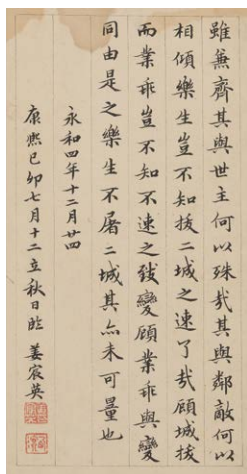 雖兼齊其與世主何以殊哉其與鄰敵何以
相傾樂生豈不知拔二城之速了哉顧城拔
而業乖豈不知不速之致變顧業乖與變
同由是之樂生不屠二城其亦未可量也
永和四年十二月廿四
康熙己卯七月十二立秋日臨 姜宸英